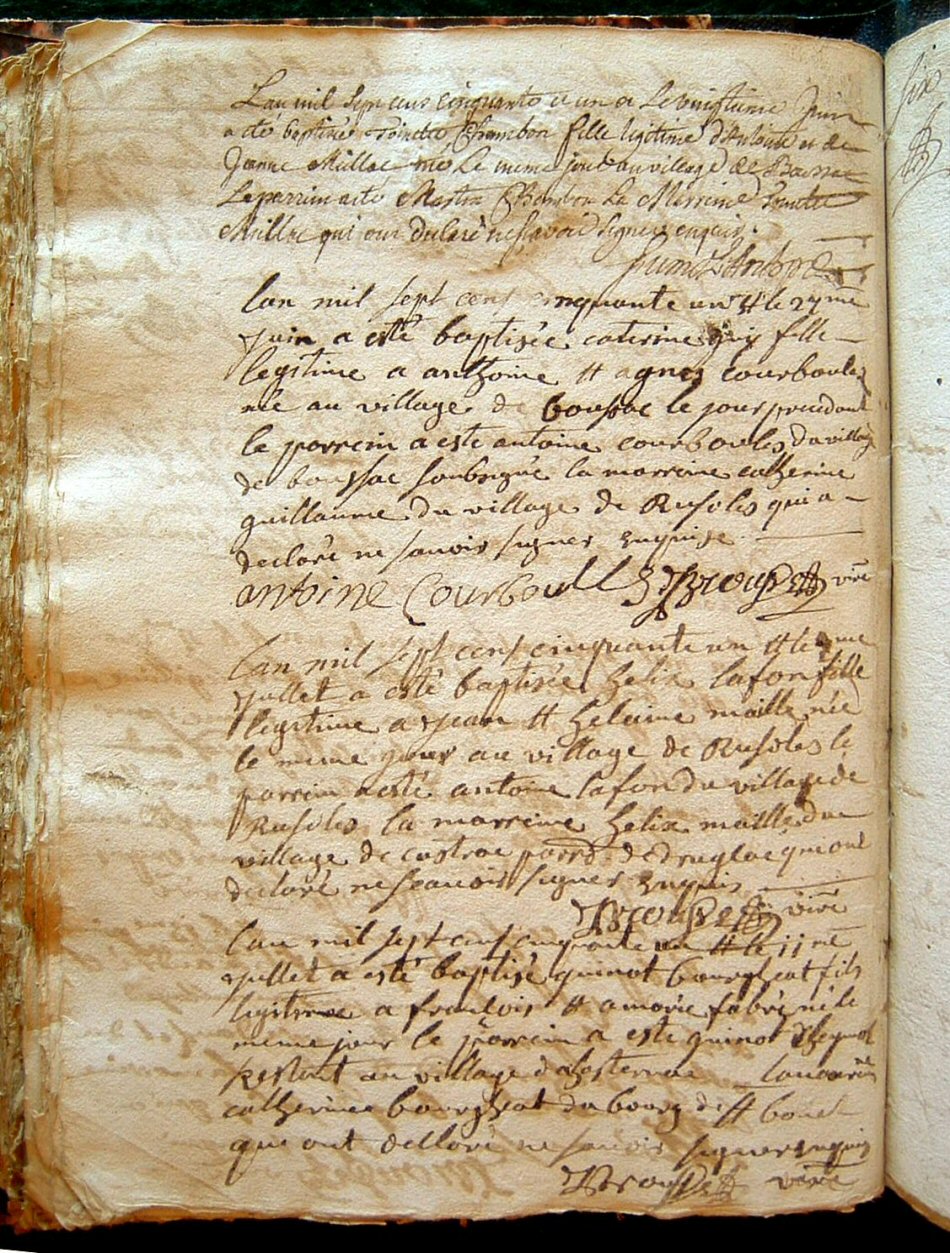 L'an mil sept cens cinquante et un et le vingtieme Juin
a été baptisée Toinette Chambon fille legitime d'Antoine et de
Jeanne Millac née le meme jour au village de Boussac
Le parrim a eté Chambon La Merreine Toinette
Millac qui ont declaré ne savoir signer enquis.
lan mil sept cens cinquante un et le 29me
juin a esté baptisée caterine fille
legitime a anthoine et agnes courboules
née au village de boussac le jour precedant
le parrein a este antoine courboules du village
de boussac soubsigné la marreine catherine
guillaume du village de Rusoles qui a
declaré ne savoir signer enquise
antoine Courboulles vire
lan mil sept cens cinquante un et le me
juillet a esté baptisée helix lafon fille
legitime a jean et heleine maille née
le meme jour au village de Rusoles le
parrein a esté antoine lafon du village de
Rusoles la marreine helix maille du
village de castrac parr. de druglac qui ont
declaré ne scavoir signer enquis
vire
lan mil sept cens cinquante un et le 11me
juillet a esté baptisé guinot bourgheat fils
legitime a francois et a marie fabre né le
meme jour le parrein a este guinot
restent au village la marne
catherine bourgheat du bourg de st bonet
que ont declaré ne savoir signer enquis
vire